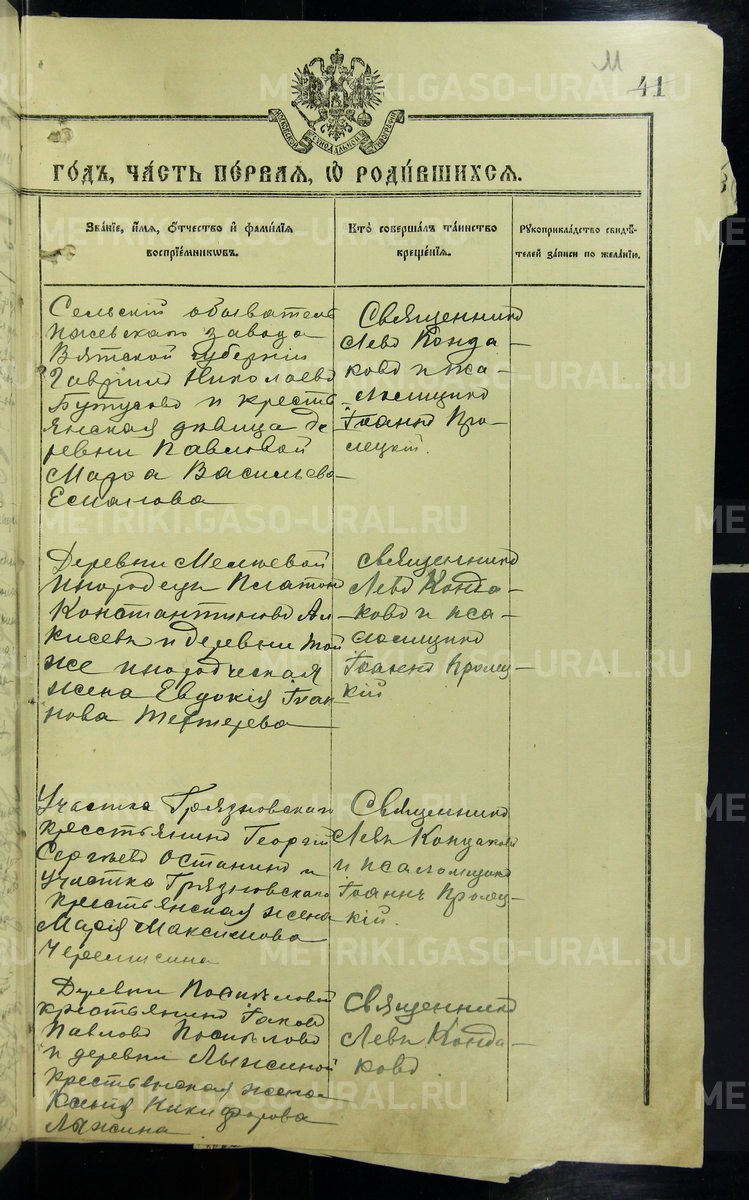 М
41
МОСКОВСКОЙ СѴНОДАЛЬНОЙ ТИПОГРАФІИ
ГОДЪ, ЧАСТЬ ПЕРВАЯ, Ѡ РОДИВШИХСЯ.
Званіе, имя, отчество и фамилія
воспріемниковъ.
Кто совершалъ таинство
крещенія.
Рукоприкладство свидѣ-
телей записи по желанію.
Сельскій обыватель
Ижевскаго завода
Вятской губерніи
Гавріилъ Николаевъ
Бутусовъ и кресть
янская дѣвица де
ревни Павловой
Марѳа Васильева
Есманова
Священникъ
Левъ Конда-
ковъ и пса-
ломщикъ
Іоаннъ Про-
лецкій.
Деревни Мелюевой
инородецъ Платонъ
Константиновъ Ал
ексѣевъ и деревни той
же инородческая
жена Евдокія Іоан
нова Тептерева
Священникъ
Левъ Конда-
ковъ и пса-
ломщикъ
Іоаннъ Пролец-
кій
Участка Грязновскаго
крестьянинъ Георгій
Сергѣевъ Останинъ и
участка Грязновскаго
крестьянская жена
Марія Максимова
Черемисина
Священникъ
Левъ Кондаковъ
и псаломщикъ
Іоаннъ Пролец-
кій.
Деревни Поспѣловой
крестьянинъ Іаковъ
Павловъ Поспѣловъ
и деревни Лыжиной
крестьянская жена
Ксенія Никифорова
Лыжина
Священникъ
Левъ Конда-
ковъ.
METRIKI.GASO-URAL.RU